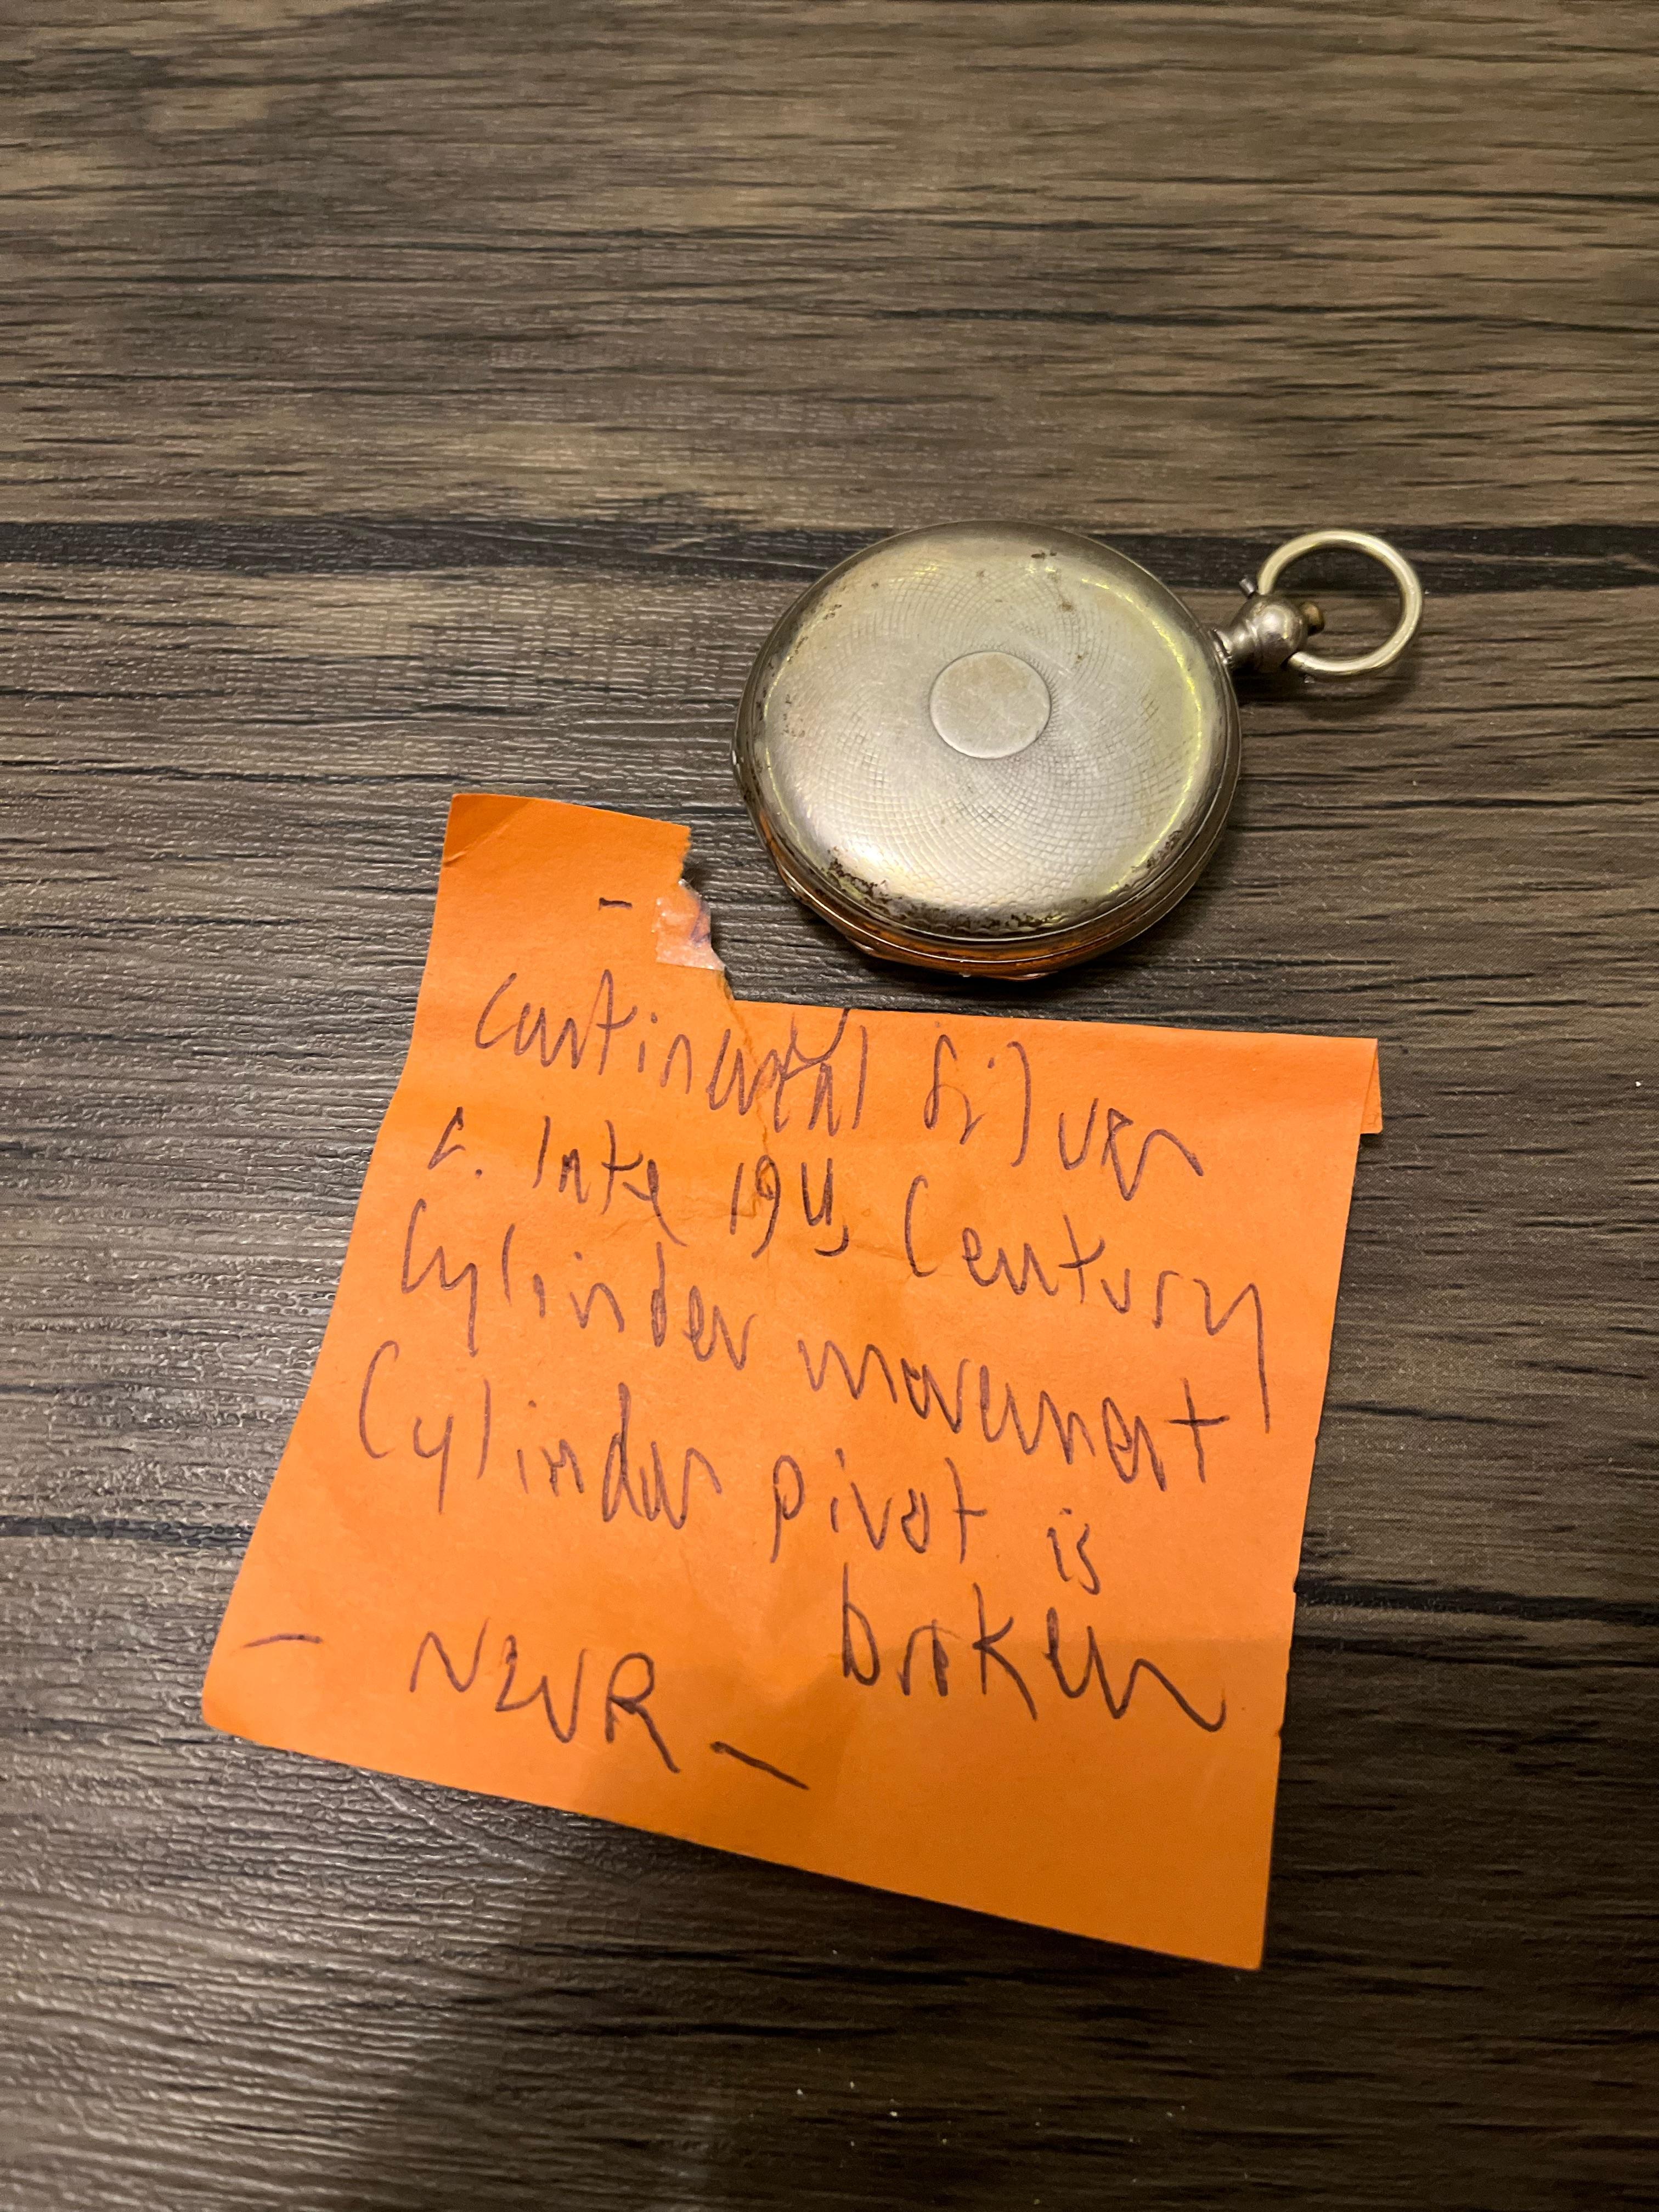 -
Continental Silver
c. late 19th Century
Cylinder movement
Cylinder pivot is
broken
— NWR —